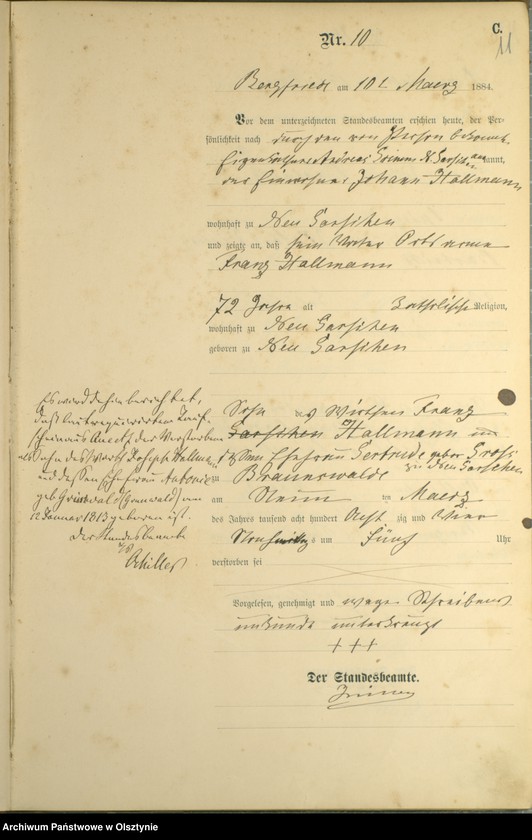 C.
11
Nr. 10
Bergfriede am 10t Maerz 1884.
Vor dem unterzeichneten Standesbeamten erschien heute, der Per-
sönlichkeit nach durch den von Person bekannt.
Andreas kannt,
der Einwohner Johann Hallmann
wohnhaft zu Neu Garschen
und zeigte an, daß sein Vater Ortsarme
Franz Hallmann
72 Jahre alt Katholische Religion,
wohnhaft zu Neu Garschen
geboren zu Neu Garschen
Sohn des Wirthen Franz
Garschen Hallmann und
Ehefrau Gertrude gebor Groß
zu Neu Garschen
zu Braunswalde
am Neun ten Maerz
des Jahres tausend acht hundert Acht zig und Vier
Nachmittags um Fünf Uhr
verstorben sei
Vorgelesen, genehmigt und wegen Schreibens
unkunde unterkreuzt
+++
Der Standesbeamte.
Es wird dahin berichtet,
daß laut
der Verstorbene
als Sohn des Wirths Joseph Hallmann
und dessen Ehefrau Antonie
geb Grunwald (Grunwald) am
12 Januar 1813 geboren ist.
Der Standesbeamte
Achilles
Archiwum Państwowe w Olsztynie